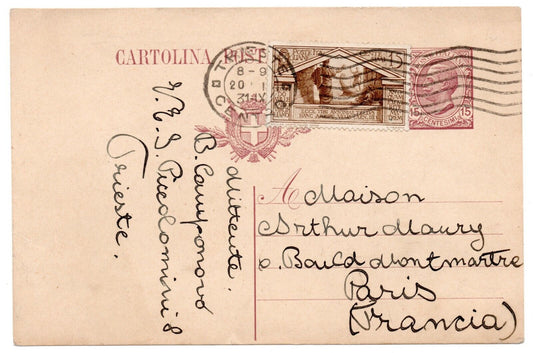 CARTOLINA POSTALE
TRIESTE
8-9
20 I
31 IX
CENTRO
15 15
CENTESIMI
Mittente.
B. Camponovo
V. E. S. Piccolomini 8
Trieste.
A Maison
Arthur Maury
6. Boul.d Montmartre
Paris
(Francia)